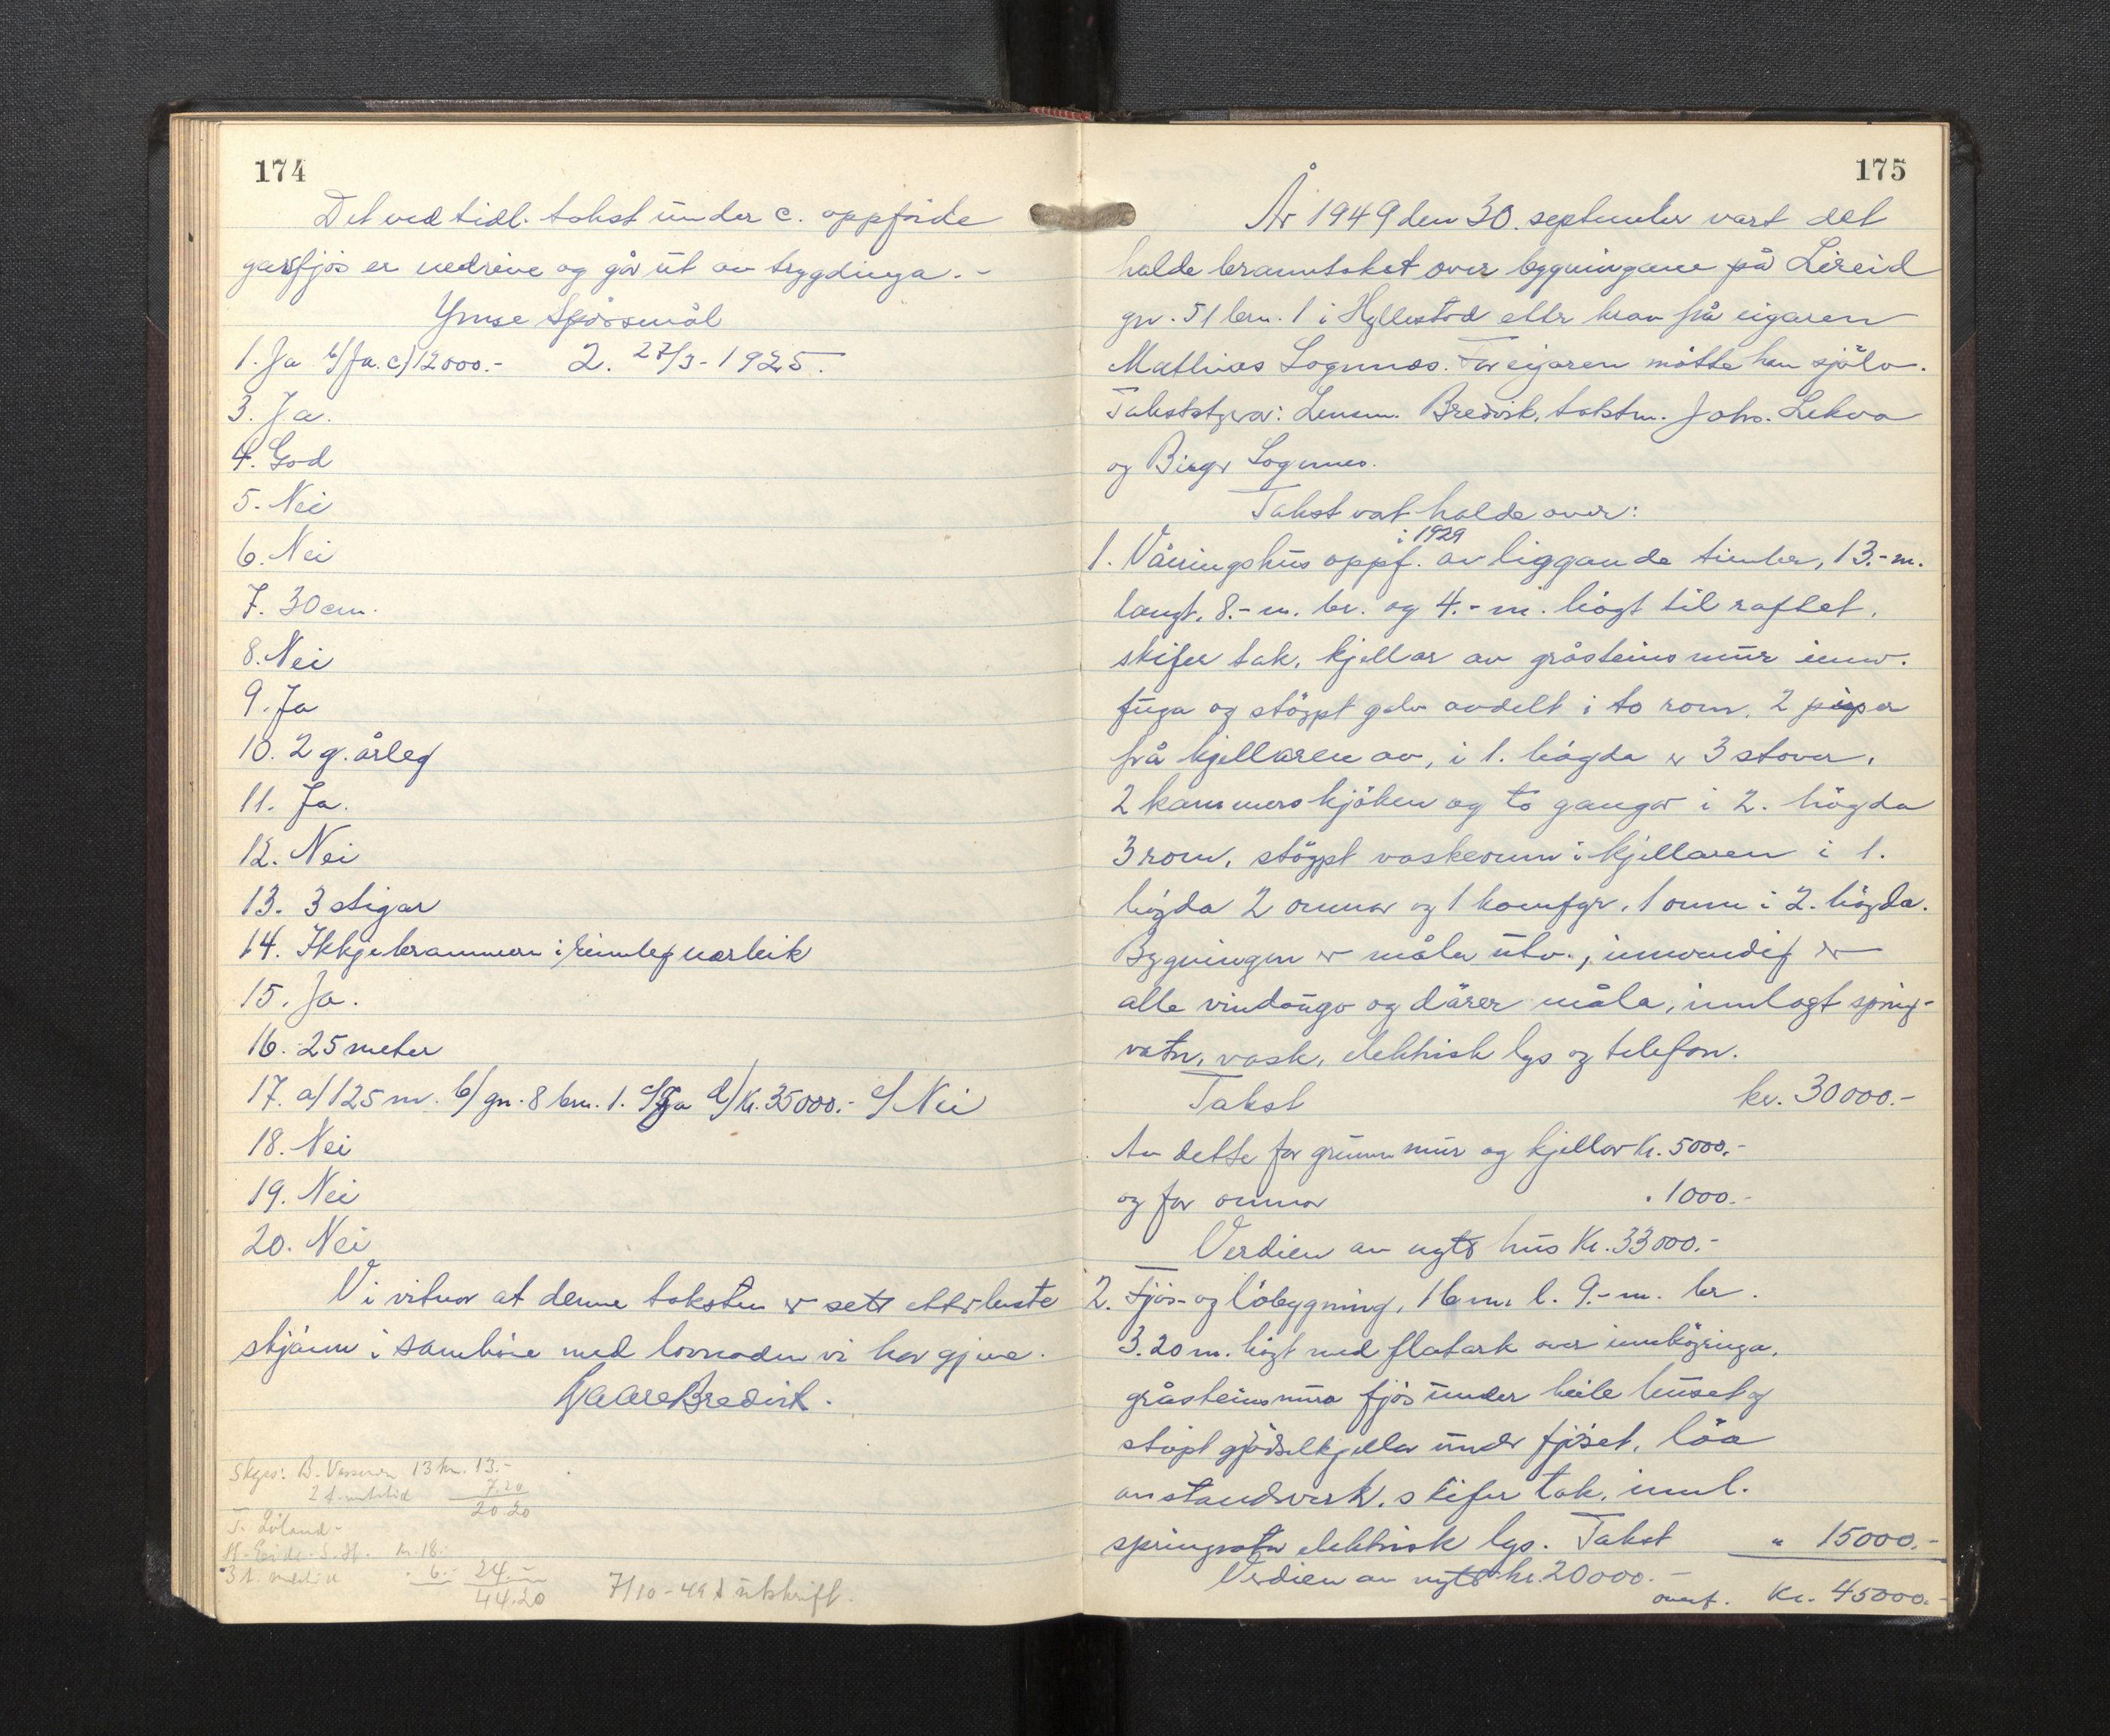 174
Det ved tidl. takst under c. oppförde
garfjös er nedrive og går ut av trygdinga.-
Ymse Spörsmål
1. Ja b/Ja. c/12000.- 2. 27/3-1925.
3. Ja.
4. God
5. Nei
6. Nei
7. 30 cm.
8. Nei
9. Ja
10. 2 g. årleg
11. Ja.
12. Nei
13. 3 stigar
14. Ikkje brannmur i rimeleg nærleik
15. Ja.
16. 25 meter
17. a/ 125 m. b/ gn. 8 brn. 1. c/ Ja d/ Kr. 35000.- e/ Nei
18. Nei
19. Nei
20. Nei
Vi vitnar at denne taksten er sett etter beste
skjönn i samhöve med lovnaden vi har gjeve.
Kaare Bredvik.
Skyss: B. 13 km. 13.-
2 d. 7.20
20.20
T. Löland-
H. Eide S. H. kr. 18.-
3 d. 6.- 24.-
44.20 7/10-49 utskrift.
175
År 1949 den 30. september vart det
halde branntakst over bygningane på Lireid
gn. 51 brn. 1 i Hyllestad etter krav frå eigaren
Mathias Sognnes. For eigaren mötte han sjölv.
Takststyrar: Lensm. Bredvik, takstm. Johs. Lekva
og Birger Sognnes.
Takst vart halde over:
i 1929
1. Våningshus oppf. av liggande timber, 13.- m.
langt, 8.- m. br. og 4.- m. högt til raftet,
skifer tak, kjellar av gråsteinsmur innv.
fuga og stöypt golv avdelt i to rom, 2 piper
frå kjellaren av, i 1. högda er 3 stover,
2 kammers kjöken og to gangar i 2. högda
3 rom, stöypt vaskerum i kjellaren i 1.
högda 2 omnar og 1 komfyr, 1 omn i 2. högda.
Bygningen er måla utv., innvendig er
alle vindaugo og dörer måla, innlagt spring-
vatn, vask, elektrisk lys og telefon.
Takst kr. 30000.-
Av dette for grunnmur og kjellar kr. 5000.-
og for omnar " 1000.-
Verdien av nytt hus Kr. 33000.-
2. Fjös- og löbygning, 16 m. l. 9.- m. br.
3.20 m. högt med flatark over innköyringa,
gråsteinsmura fjös under heile huset og
stöpt gjödselkjellar under fjöset, löa
av standverk, skifer tak, innl.
springvatn elektrisk lys. Takst " 15000.-
Verdien av nytt kr. 20000.-
overf. Kr. 45000.-